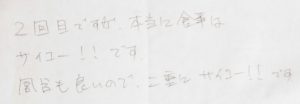 2回目ですが、本当に食事は
サイコー!!です。
風呂も良いので、二重にサイコー!!です